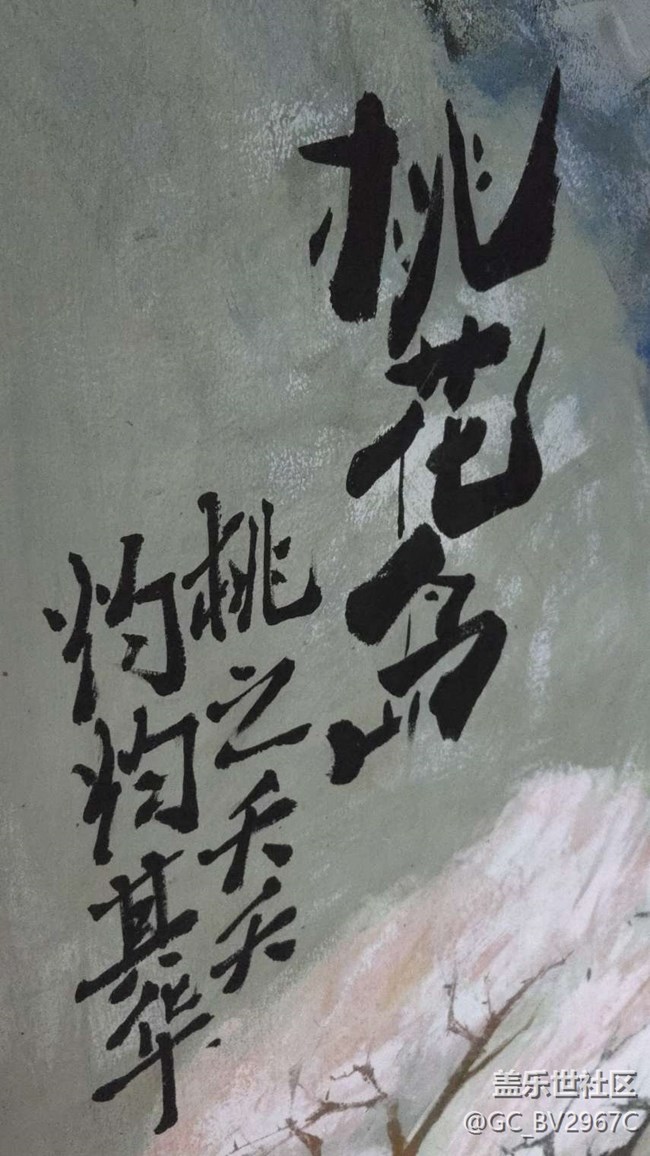 桃花岛
桃之夭夭
灼灼其华
盖乐世社区
@GC_BV2967C